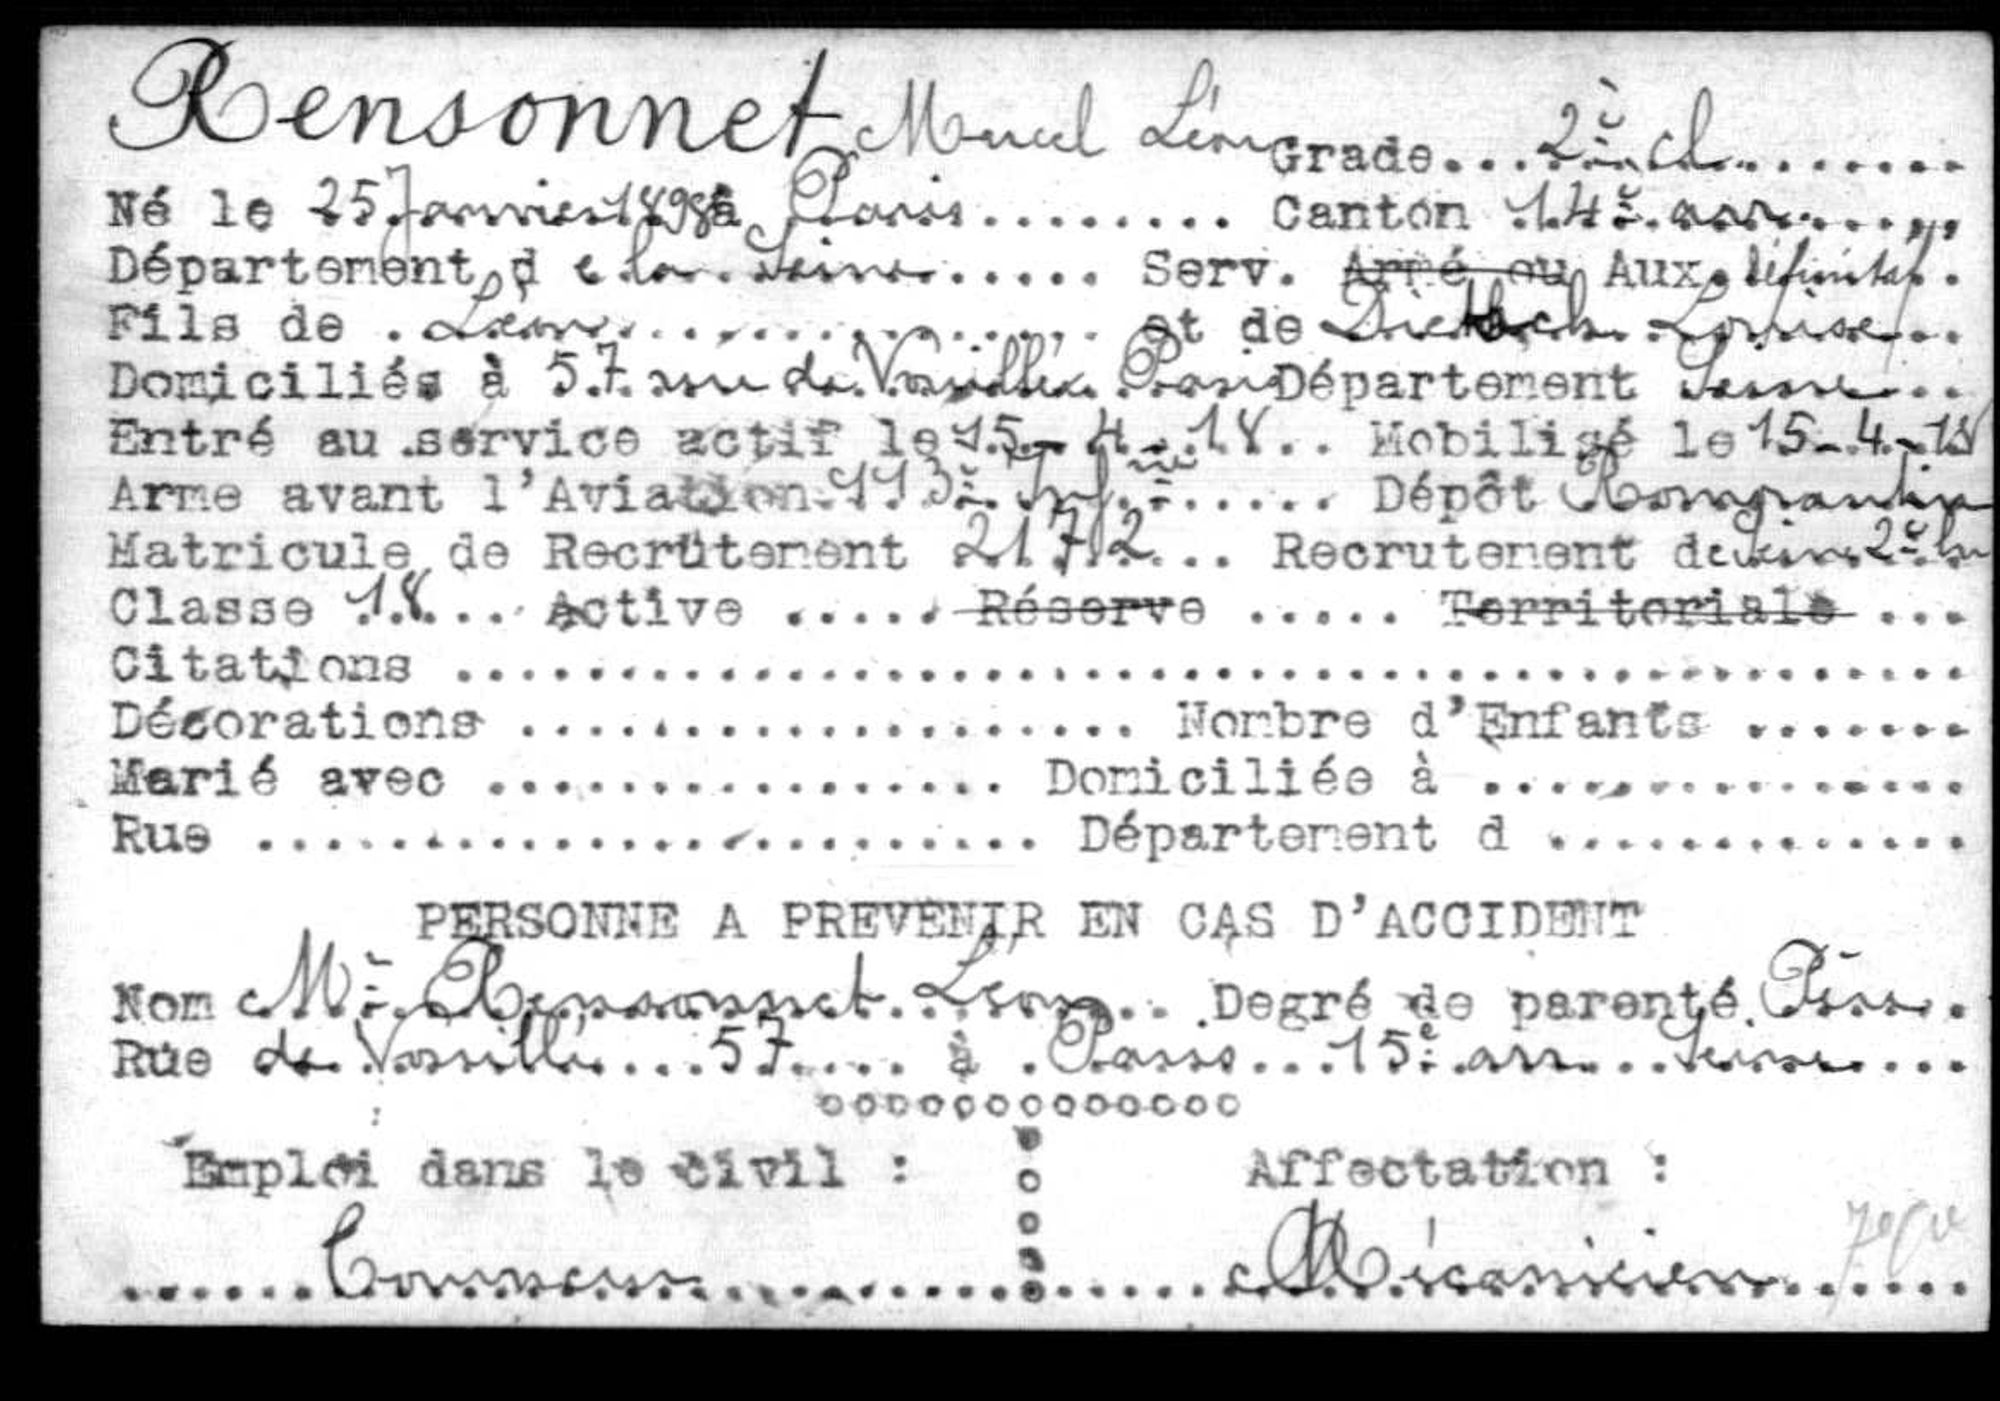 Rensonnet Marcel Léon Grade...2è cl........
Né le 25 Janvier 1898 à Paris........ Canton 14è arr.....
Département de la Seine..... Serv. Armé ou Aux. définitif.
Fils de . Léon................ et de Dietsch Louise...
Domiciliés à 57 rue de Vouillé Paris Département Seine...
Entré au service actif le 15-4-18.. Mobilisé le 15-4-18
Arme avant l'Aviation 113è Infie...... Dépôt Romorantin
Matricule de Recrutement 2172... Recrutement de Seine 2è
Classe 18... Active ..... Réserve ..... Territoriale ...
Citations ..............................................
Décorations ................... Nombre d'Enfants .......
Marié avec ................ Domiciliée à ...............
Rue ........................ Département d .............
PERSONNE A PREVENIR EN CAS D'ACCIDENT
Nom Mr Rensonnet Léon... Degré de parenté Père..
Rue de Vouillé...57.... à .Paris...15è arr...Seine....
ooooooooooooo
Emploi dans le civil : Affectation :
......Tourneur.................Mécanicien.......